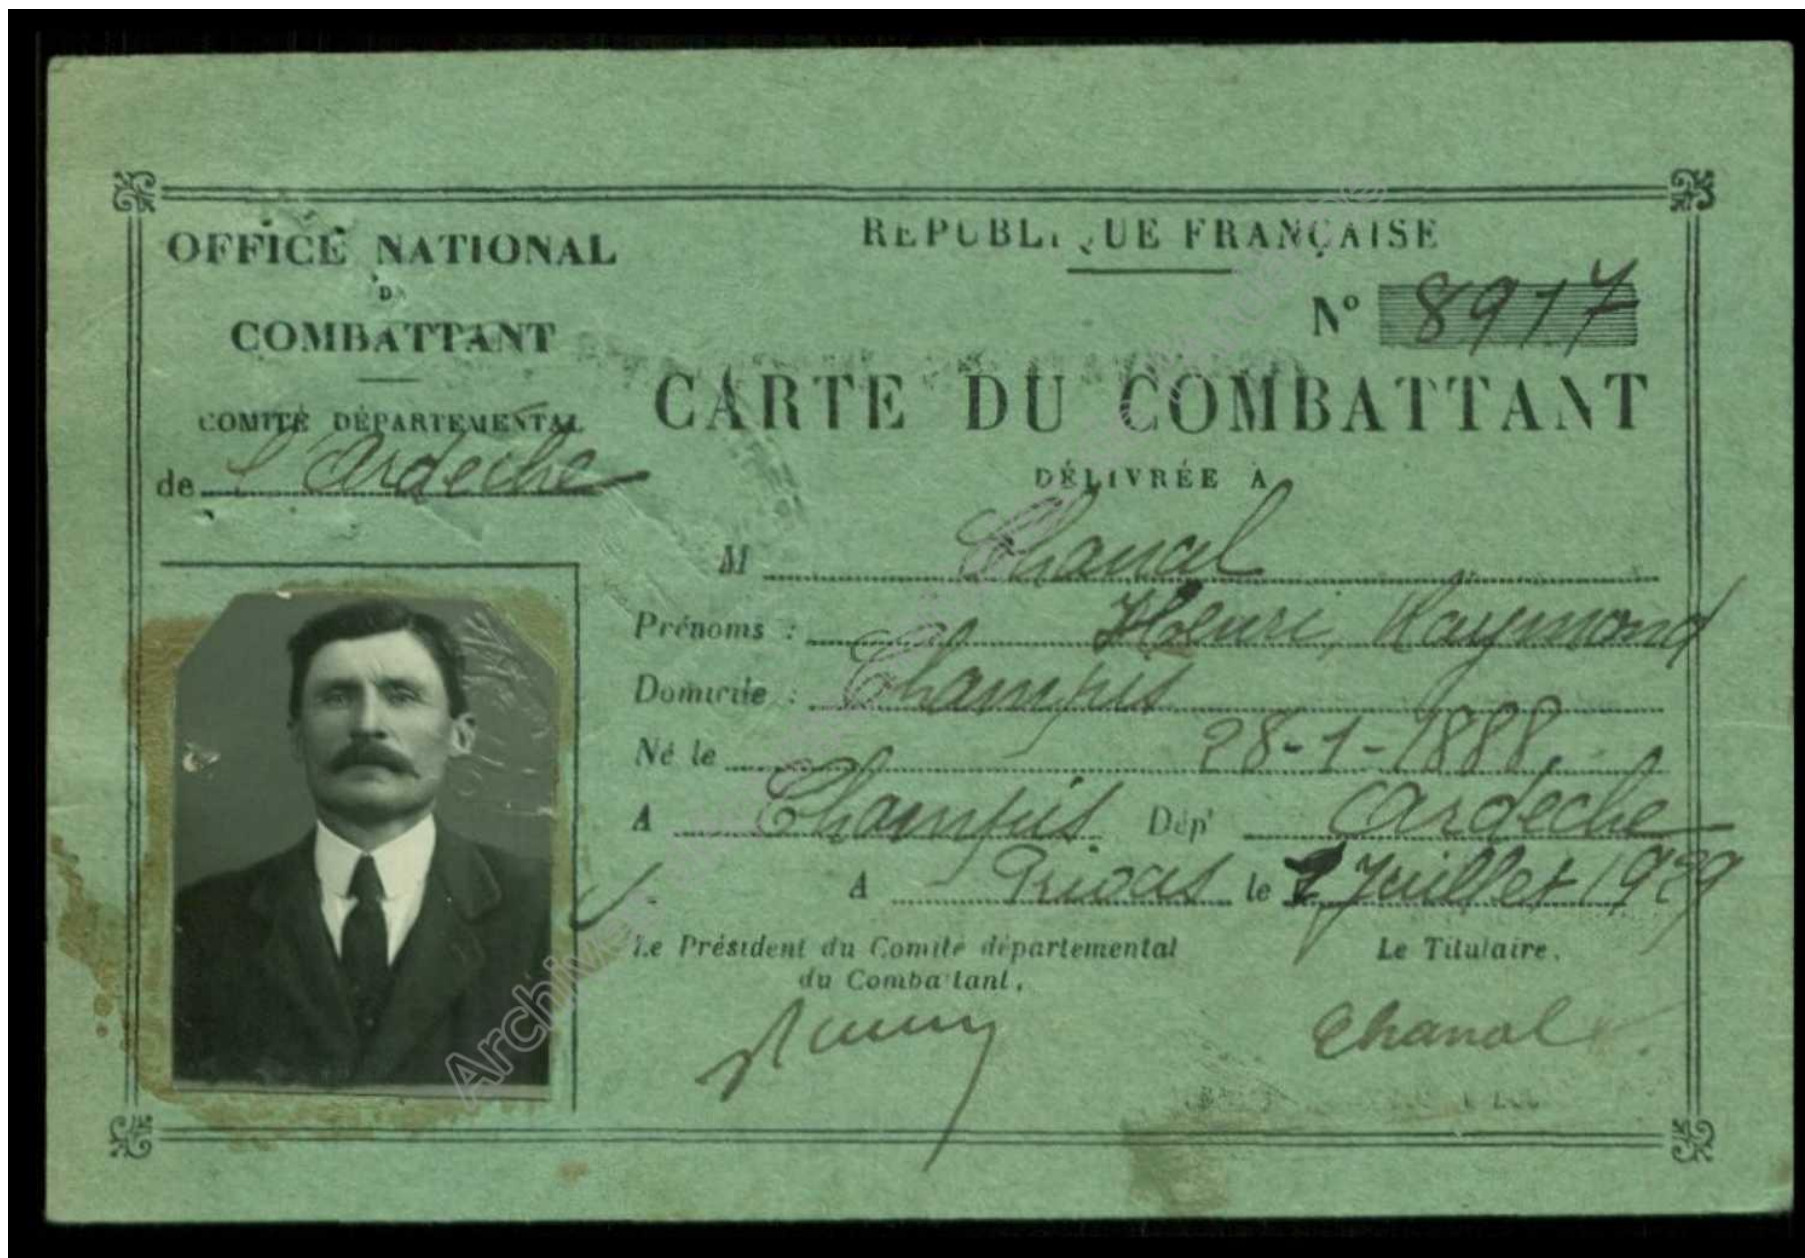 OFFICE NATIONAL
DU
COMBATTANT
COMITÉ DÉPARTEMENTAL
de l'Ardeche
REPUBLIQUE FRANÇAISE
N° 8917
CARTE DU COMBATTANT
DÉLIVRÉE A
M Chanal
Prénoms : Henri, Raymond
Domicile : Champis
Né le 28-1-1888
A Champis Dépt Ardeche
A Privas le Juillet 1929
Le Président du Comité départemental
du Combattant,
Le Titulaire,
Chanal
Archives